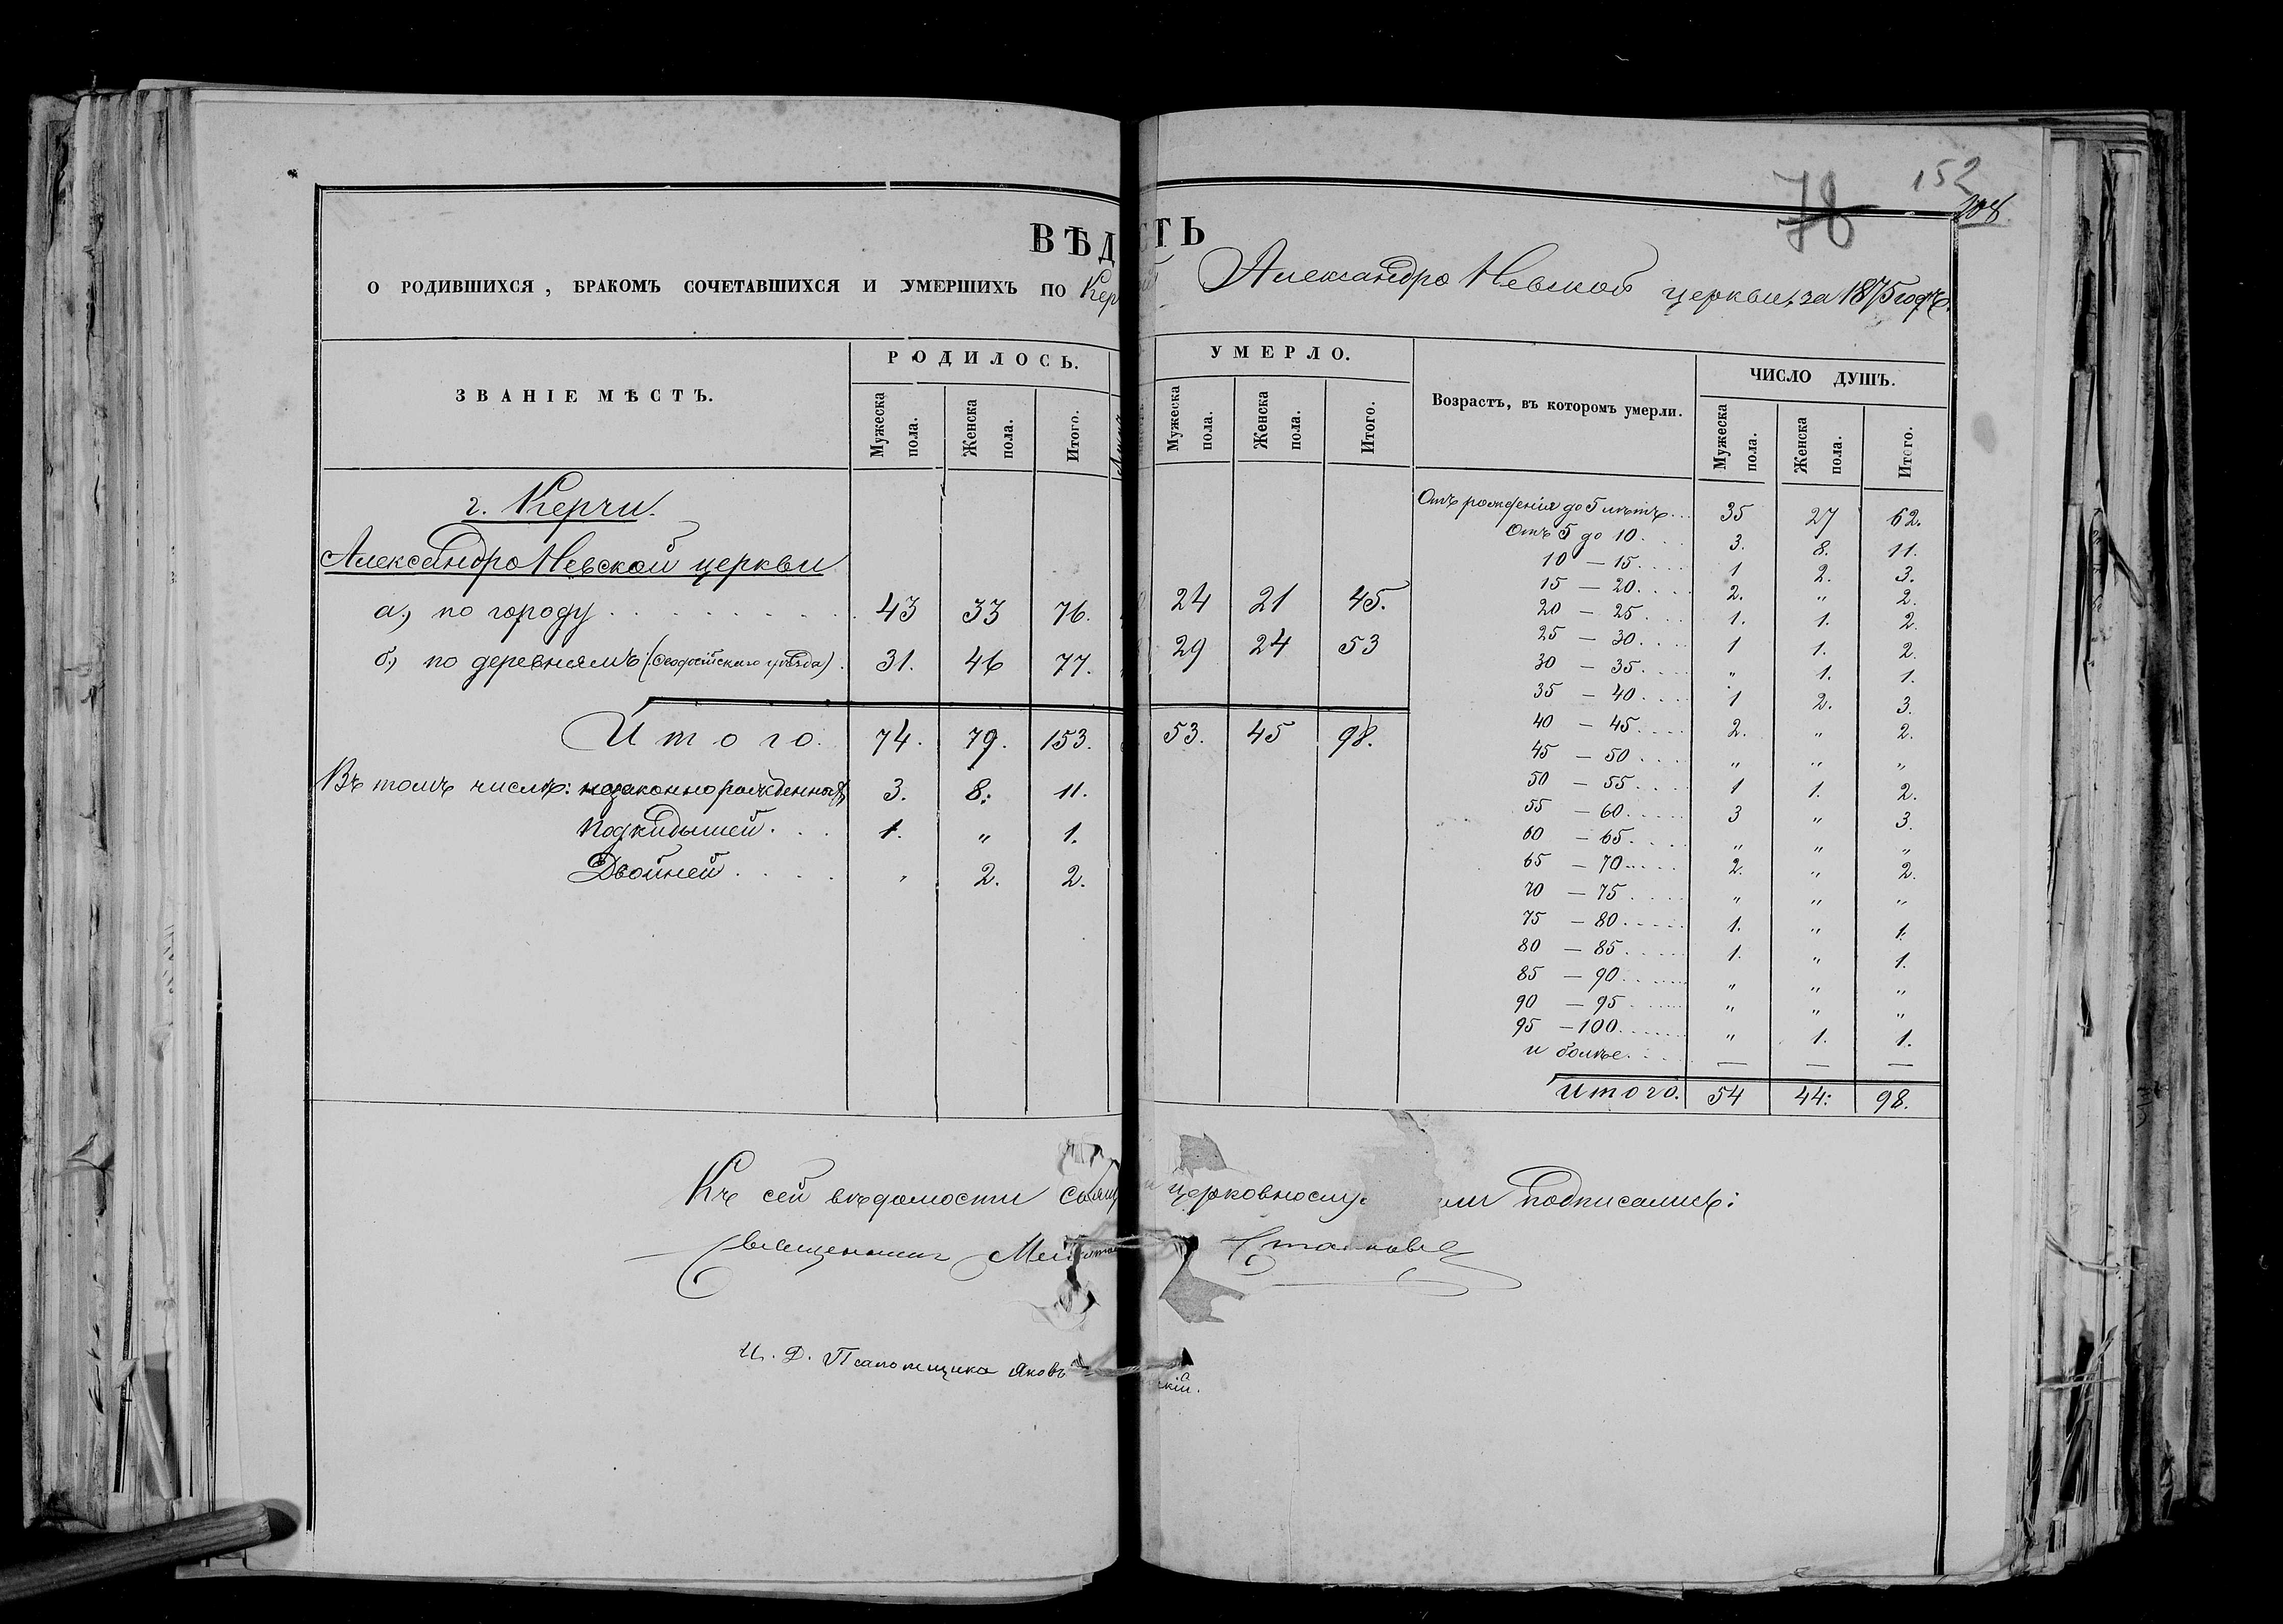 78
152
208
ВѢД СТЬ
О РОДИВШИХСЯ, БРАКОМЪ СОЧЕТАВШИХСЯ И УМЕРШИХЪ ПО Кер Александро Невской церкви, за 1875 годъ.
ЗВАНІЕ МѢСТЪ.
РОДИЛОСЬ.
Мужеска пола.
Женска пола.
Итого.
УМЕРЛО.
Мужеска пола.
Женска пола.
Итого.
Возрастъ, въ которомъ умерли.
ЧИСЛО ДУШЪ.
Мужеска пола.
Женска пола.
Итого.
г. Керчи.
Александро Невской церкви
а.) по городу . . . 43 33 76. 24 21 45.
б.) по деревнямъ (Ѳеодосійскаго уѣзда). 31. 46 77. 29 24 53
Итого. 74. 79. 153. 53. 45 98.
Въ томъ числѣ: незаконнорожденныхъ 3. 8: 11.
Подкидышей . . . 1. „ 1.
Двойней . . . . „ 2. 2.
Отъ рожденія до 5 лѣтъ... 35 27 62.
Отъ 5 до 10 . . . 3. 8. 11.
10 — 15 . . . . 1 2. 3.
15 — 20 . . . . 2. „ 2.
20 — 25 . . . 1. 1. 2.
25 — 30 . . . . 1 1. 2.
30 — 35 . . . . „ 1. 1.
35 — 40 . . . . 1 2. 3.
40 — 45 . . . . 2. „ 2.
45 — 50 . . . . „ „ „
50 — 55 . . . . 1 1. 2.
55 — 60 . . . . . 3 „ 3.
60 — 65 . . . . „ „ „
65 — 70 . . . . 2. „ 2.
70 — 75 . . . . „ „ „
75 — 80 . . . . . 1. „ 1.
80 — 85 . . . . . 1. „ 1.
85 — 90 . . . . . „ „ „
90 — 95 . . . . . „ „ „
95 — 100 . . . . . „ 1. 1.
и болѣе . . . . — — —
Итого. 54 44: 98.
Къ сей вѣдомости свящ церковнослу ли подписались:
Священникъ
И. Д. Псаломщика Яковъ скій.